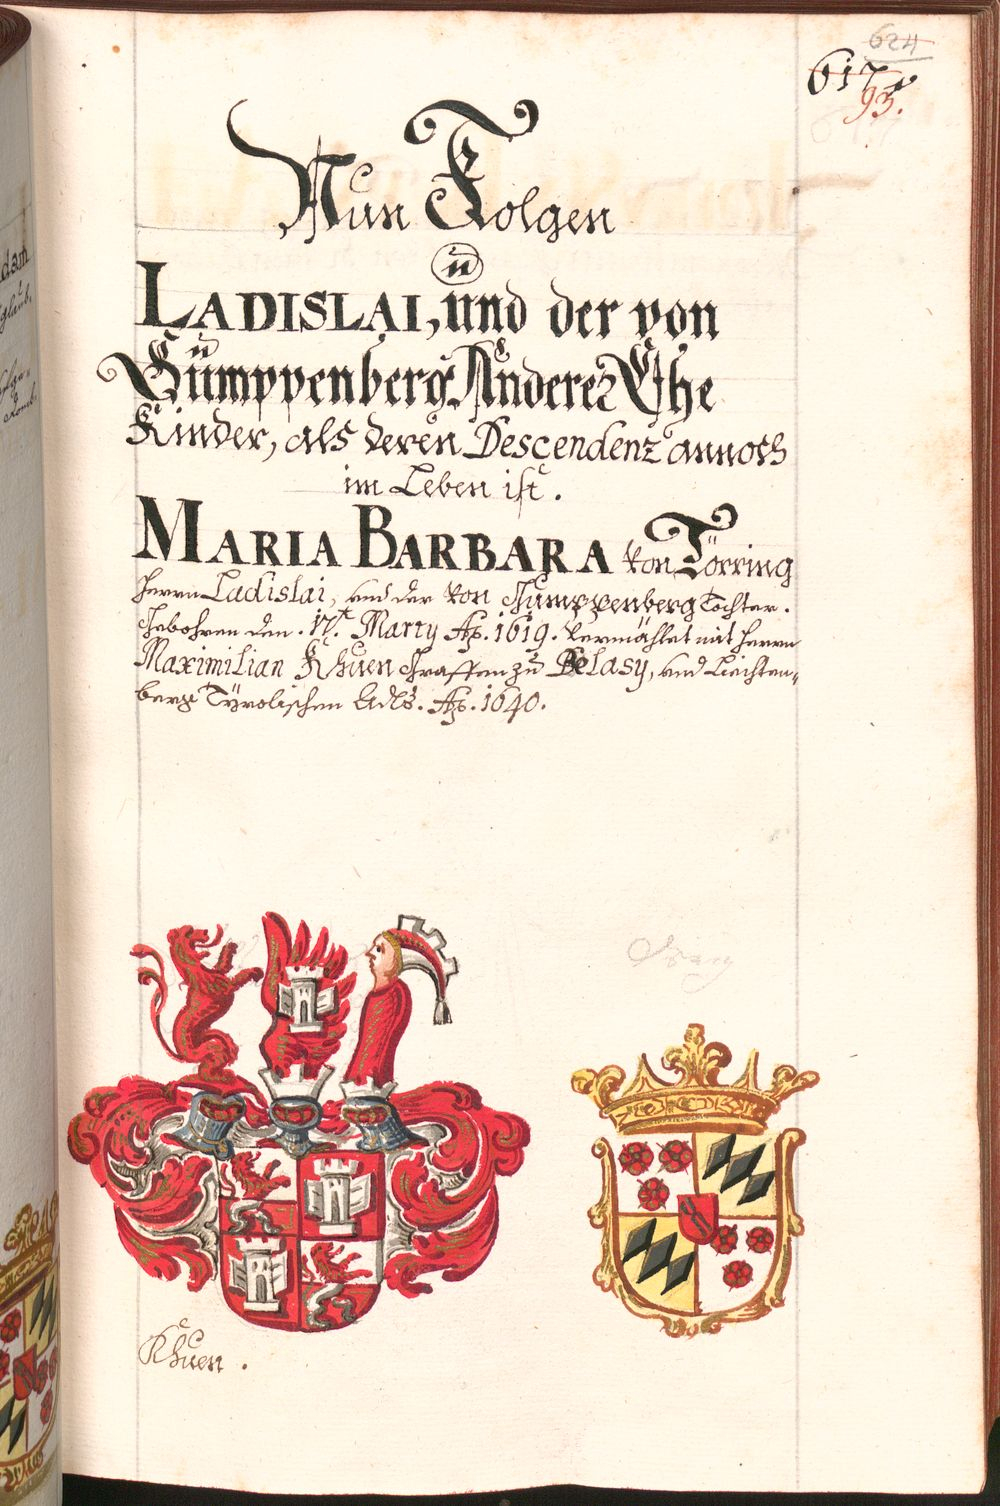 624
617
93.
Nun Folgen
LADISLAI, und der von
Gumppenberg Anderer Ehe
Kinder, als deren Descendenz annoch
im Leben ist.
MARIA BARBARA von Törring
Herrn Ladislai, und der von Gumppenberg Tochter.
Gebohren den. 17.t Marty Aō. 1619. Vermählet mit Herrn
Maximilian Khuen Graffen zu Belasy, und Liechten-
berg Tÿrolischen Adls. Aō. 1640.
Khuen.
dam